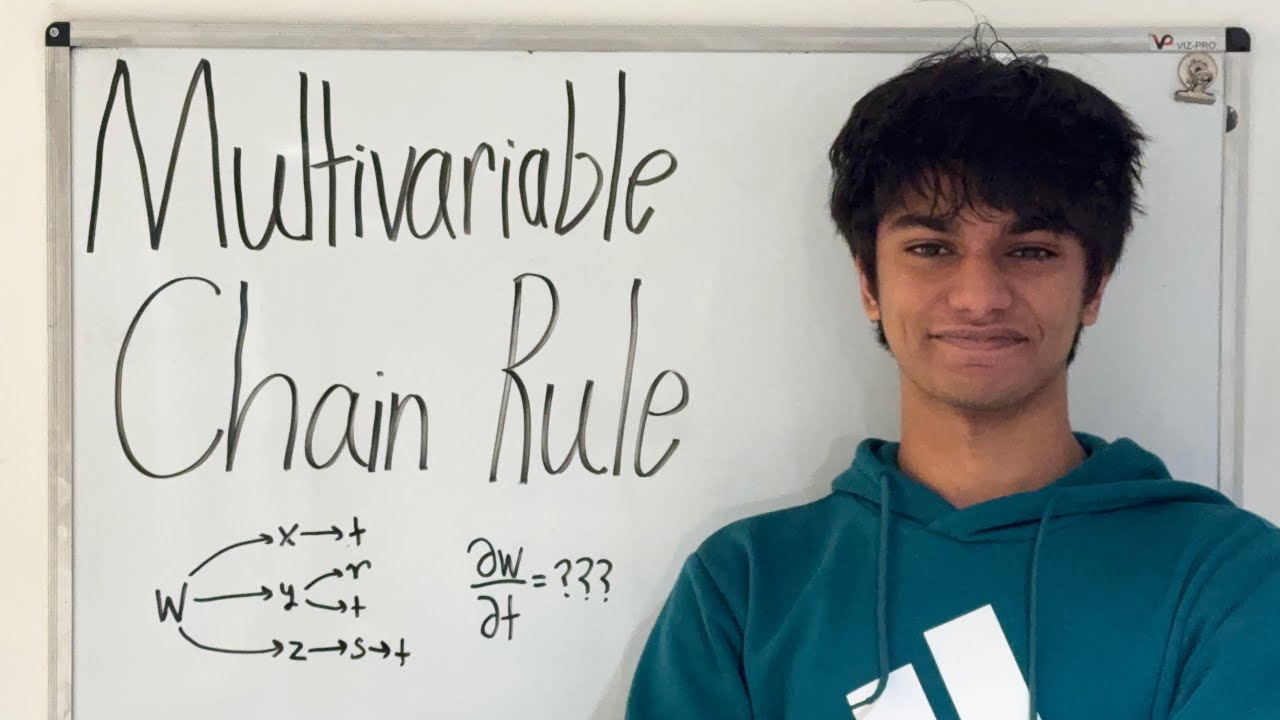 VIZ-PRO
Multivariable
Chain Rule
W → x → t
W → y → r
y → t
W → z → s → t
∂w/∂t = ???